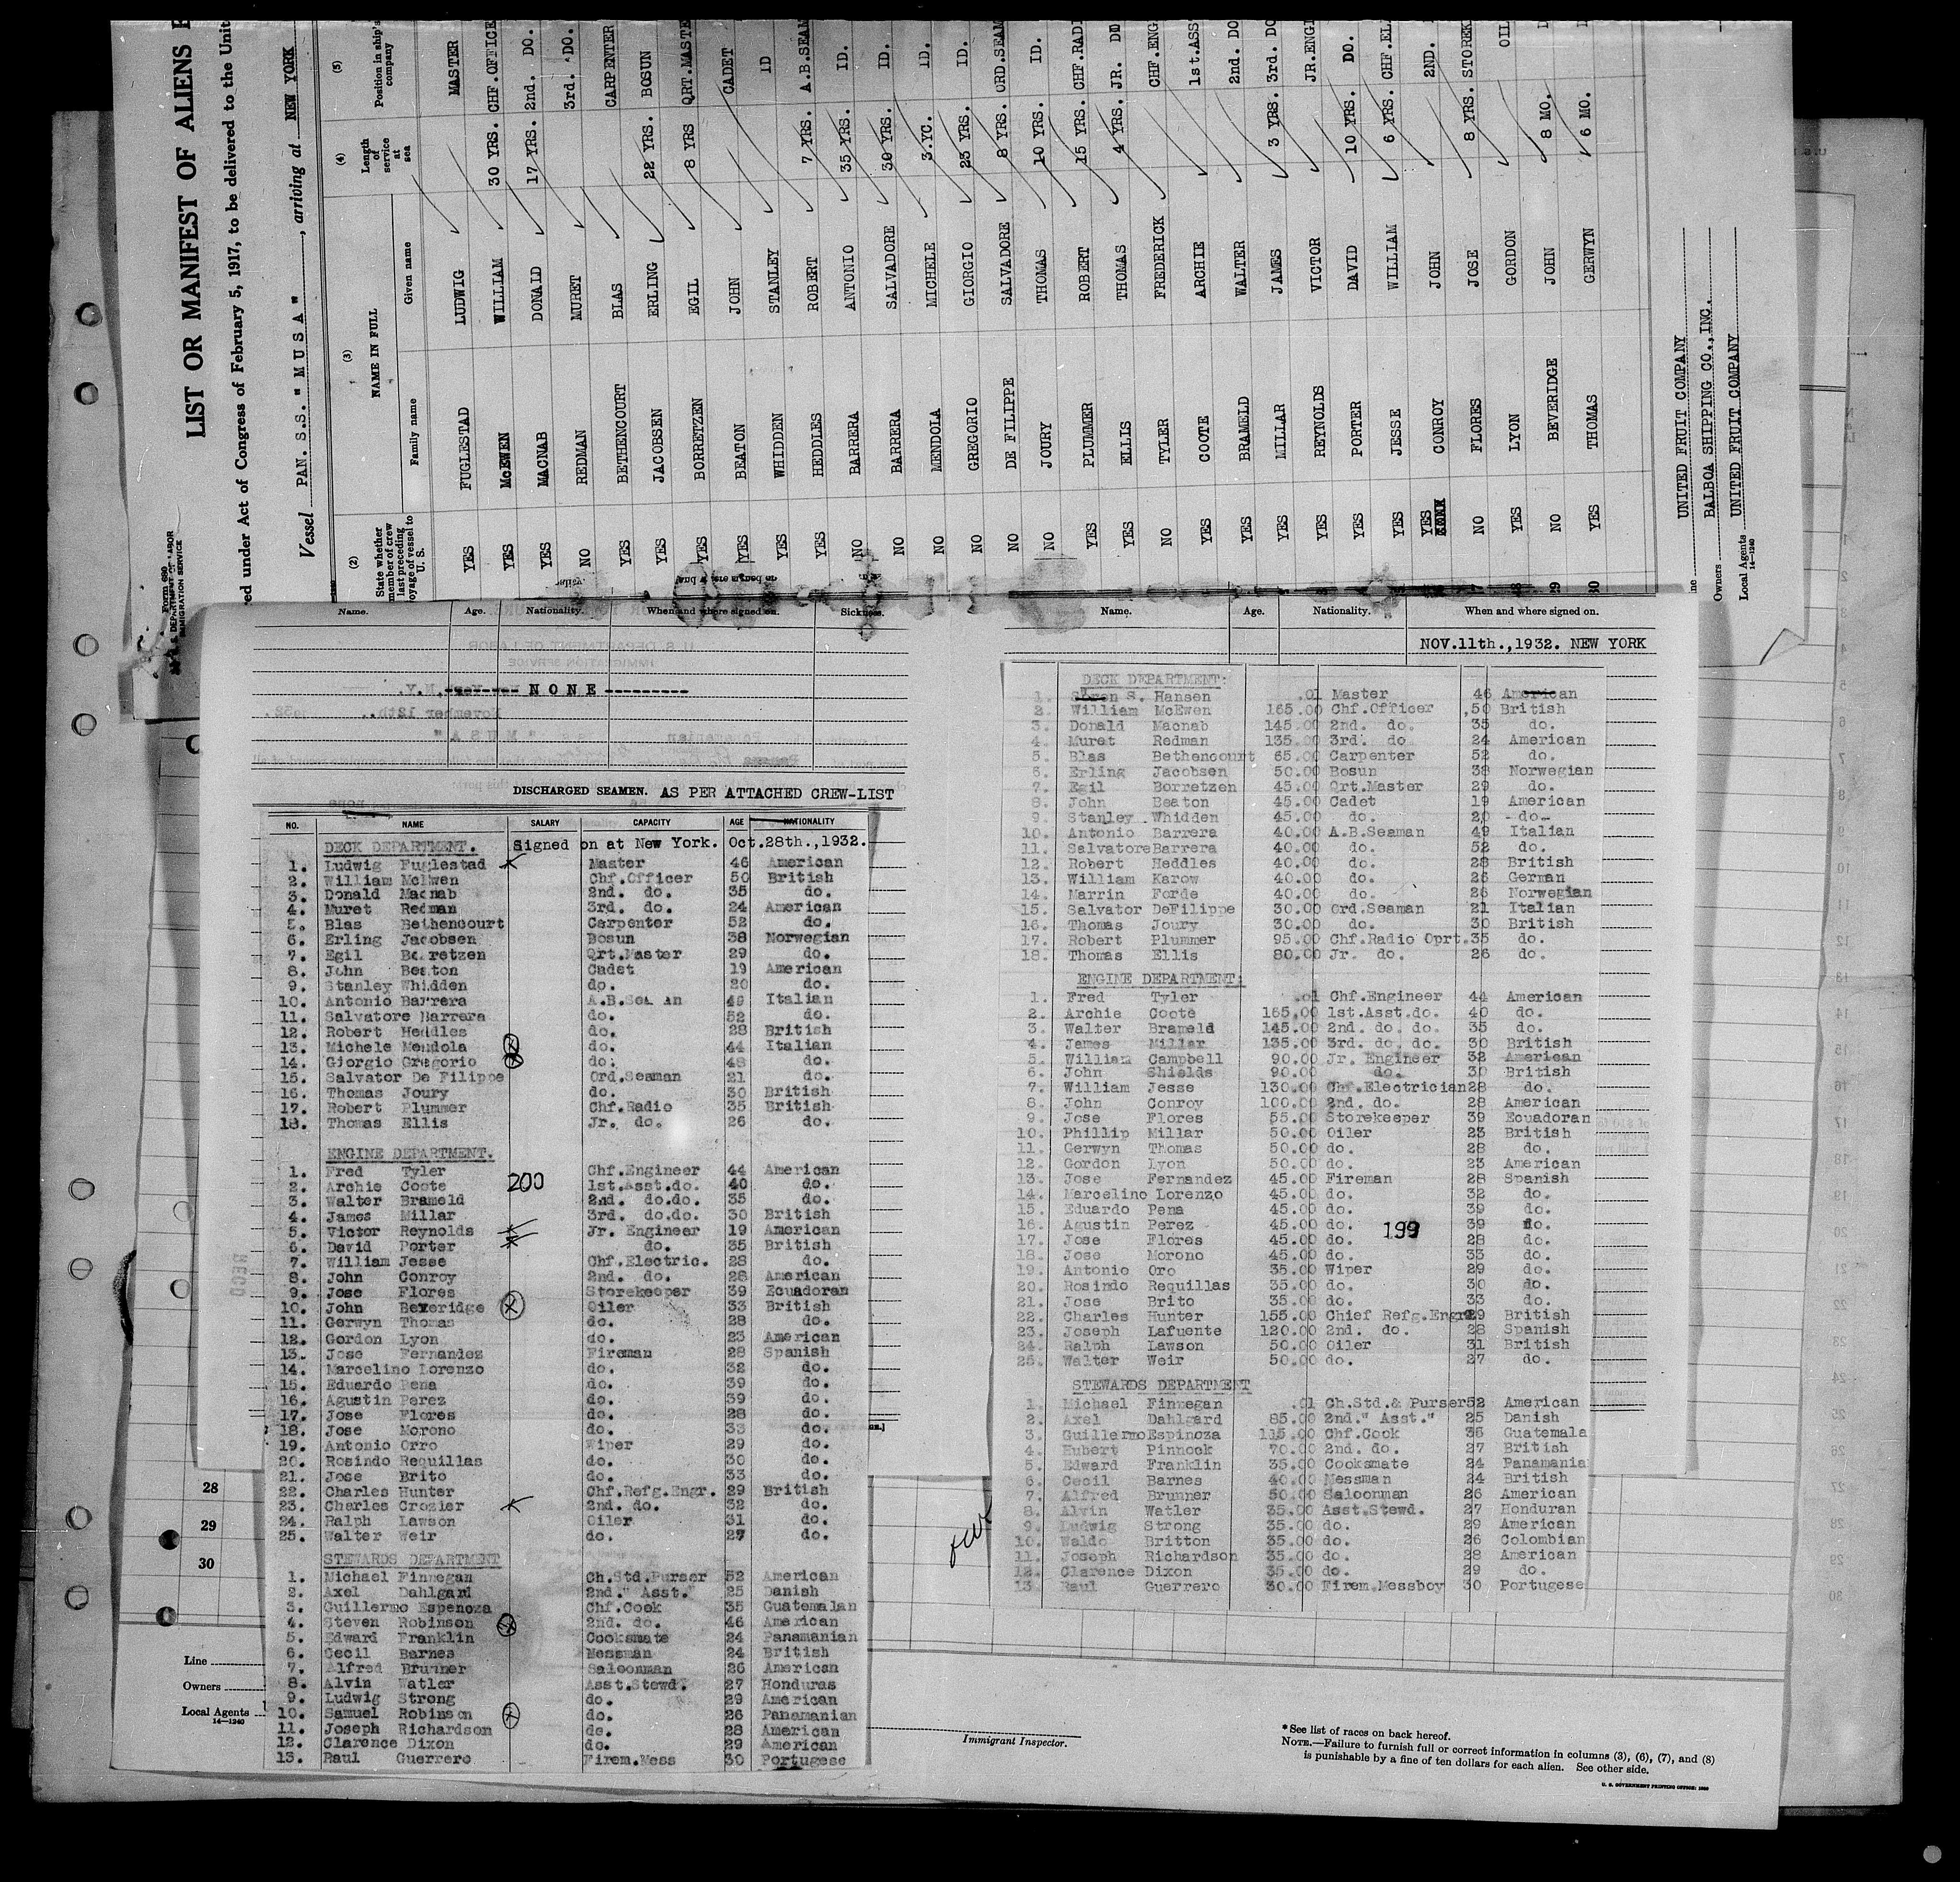 LIST OR MANIFEST OF ALIENS
ed under Act of Congress of February 5, 1917, to be delivered to the Unit
Vessel PAN. S.S. " M U S A ", arriving at NEW YORK
(2) (3) (4) (5)
State whether member of crew last preceding voyage of vessel to U. S.
NAME IN FULL
Family name Given name
Length of service at sea
Position in ship's company
YES FUGLESTAD LUDWIG MASTER
YES McEWEN WILLIAM 30 YRS. CHF.OFFICE
YES MACNAB DONALD 17 YRS. 2nd. DO.
NO REDMAN MURET 3rd. DO.
YES BETHENCOURT BLAS CARPENTER
YES JACOBSEN ERLING 22 YRS. BOSUN
YES BORRETZEN EGIL 8 YRS QRT.MASTE
YES BEATON JOHN CADET
YES WHIDDEN STANLEY ID
YES HEDDLES ROBERT 7 YRS. A.B.SEAM
NO BARRERA ANTONIO 35 YRS. ID.
NO BARRERA SALVADORE 30 YRS. ID.
NO MENDOLA MICHELE 3.YC. ID.
NO GREGORIO GIORGIO 23 YRS. ID.
NO DE FILIPPE SALVADORE 8 YRS. ORD.SEAM
NO JOURY THOMAS 10 YRS. ID.
YES PLUMMER ROBERT 15 YRS. CHF.RADI
YES ELLIS THOMAS 4 YRS. JR. DO
NO TYLER FREDERICK CHF.ENG
YES COOTE ARCHIE 1st.ASS
YES BRAMELD WALTER 2nd. DO
YES MILLAR JAMES 3 YRS. 3rd. DO
YES REYNOLDS VICTOR JR.ENGI
YES PORTER DAVID 10 YRS. DO.
YES JESSE WILLIAM 6 YRS. CHF.EL
YES CONROY JOHN 2ND.
NO FLORES JOSE 8 YRS. STOREK
YES LYON GORDON OIL
29 NO BEVERIDGE JOHN 8 MO.
30 YES THOMAS GERWYN 6 MO.
ine UNITED FRUIT COMPANY
Owners BALBOA SHIPPING CO.,INC.
Local Agents UNITED FRUIT COMPANY
14—1240
Form 680
U. S. DEPARTMENT OF LABOR
IMMIGRATION SERVICE
Name. Age. Nationality. When and where signed on. Sickness.
-------- N O N E ---------
DISCHARGED SEAMEN. AS PER ATTACHED CREW-LIST
NO. NAME SALARY CAPACITY AGE NATIONALITY
DECK DEPARTMENT. Signed on at New York. Oct.28th.,1932.
1. Ludwig Fuglestad Master 46 American
2. William McEwen Chf.Officer 50 British
3. Donald Macnab 2nd. do. 35 do.
4. Muret Redman 3rd. do. 24 American
5. Blas Bethencourt Carpenter 52 do.
6. Erling Jacobsen Bosun 38 Norwegian
7. Egil Borretzen Qrt.Master 29 do.
8. John Beaton Cadet 19 American
9. Stanley Whidden do. 20 do.
10. Antonio Barrera A.B.Sea an 49 Italian
11. Salvatore Barrera do. 52 do.
12. Robert Heddles do. 28 British
13. Michele Mendola do. 44 Italian
14. Giorgio Gregorio do. 48 do.
15. Salvator De Filippe Ord.Seaman 21 do.
16. Thomas Joury do. 30 British
17. Robert Plummer Chf.Radio 35 British
18. Thomas Ellis Jr. do. 26 do.
ENGINE DEPARTMENT.
1. Fred Tyler Chf.Engineer 44 American
2. Archie Coote 200 1st.Asst.do. 40 do.
3. Walter Brameld 2nd. do.do. 35 do.
4. James Millar 3rd. do.do. 30 British
5. Victor Reynolds Jr. Engineer 19 American
6. David Porter do. 35 British
7. William Jesse Chf.Electric. 28 do.
8. John Conroy 2nd. do. 28 American
9. Jose Flores Storekeeper 39 Ecuadoran
10. John Beveridge Oiler 33 British
11. Gerwyn Thomas do. 28 do.
12. Gordon Lyon do. 23 American
13. Jose Fernandez Fireman 28 Spanish
14. Marcelino Lorenzo do. 32 do.
15. Eduardo Pena do. 39 do.
16. Agustin Perez do. 39 do.
17. Jose Flores do. 28 do.
18. Jose Morono do. 33 do.
19. Antonio Orro Wiper 29 do.
20. Rosindo Requillas do. 30 do.
21. Jose Brito do. 33 do.
22. Charles Hunter Chf.Refg.Engr. 29 British
23. Charles Crozier 2nd. do. 32 do.
24. Ralph Lawson Oiler 31 do.
25. Walter Weir do. 27 do.
STEWARDS DEPARTMENT
1. Michael Finnegan Ch.Std.Purser 52 American
2. Axel Dahlgard 2nd." Asst." 25 Danish
3. Guillermo Espenoza Chf.Cook 35 Guatemalan
4. Steven Robinson 2nd. do. 46 American
5. Edward Franklin Cooksmate 24 Panamanian
6. Cecil Barnes Messman 24 British
7. Alfred Brunner Saloonman 26 American
8. Alvin Watler Asst.Stewd. 27 Honduras
9. Ludwig Strong do. 29 American
10. Samuel Robinson do. 26 Panamanian
11. Joseph Richardson do. 28 American
12. Clarence Dixon do. 29 American
13. Raul Guerrero Firem.Mess 30 Portugese
Name. Age. Nationality. When and where signed on.
NOV.11th.,1932. NEW YORK
DECK DEPARTMENT:
1. Soren S. Hansen .01 Master 46 American
2. William McEwen 165.00 Chf.Officer 50 British
3. Donald Macnab 145.00 2nd. do. 35 do.
4. Muret Redman 135.00 3rd. do 24 American
5. Blas Bethencourt 65.00 Carpenter 52 do.
6. Erling Jacobsen 50.00 Bosun 38 Norwegian
7. Egil Borretzen 45.00 Qrt.Master 29 do.
8. John Beaton 45.00 Cadet 19 American
9. Stanley Whidden 45.00 do. 20 do.
10. Antonio Barrera 40.00 A.B.Seaman 49 Italian
11. Salvatore Barrera 40.00 do. 52 do.
12. Robert Heddles 40.00 do. 28 British
13. William Karow 40.00 do. 26 German
14. Marrin Forde 40.00 do. 26 Norwegian
15. Salvator DeFilippe 30.00 Ord.Seaman 21 Italian
16. Thomas Joury 30.00 do. 30 British
17. Robert Plummer 95.00 Chf.Radio Oprt. 35 do.
18. Thomas Ellis 80.00 Jr. do. 26 do.
ENGINE DEPARTMENT:
1. Fred Tyler .01 Chf.Engineer 44 American
2. Archie Coote 165.00 1st.Asst.do. 40 do.
3. Walter Brameld 145.00 2nd. do. do. 35 do.
4. James Millar 135.00 3rd. do. do. 30 British
5. William Campbell 90.00 Jr. Engineer 32 American
6. John Shields 90.00 do. 30 British
7. William Jesse 130.00 Chf.Electrician 28 do.
8. John Conroy 100.00 2nd. do. 28 American
9. Jose Flores 55.00 Storekeeper 39 Ecuadoran
10. Phillip Millar 50.00 Oiler 23 British
11. Gerwyn Thomas 50.00 do. 28 do.
12. Gordon Lyon 50.00 do. 23 American
13. Jose Fernandez 45.00 Fireman 28 Spanish
14. Marcelino Lorenzo 45.00 do. 32 do.
15. Eduardo Pena 45.00 do. 39 do.
16. Agustin Perez 45.00 do. 199 39 do.
17. Jose Flores 45.00 do. 28 do.
18. Jose Morono 45.00 do. 33 do.
19. Antonio Oro 35.00 Wiper 29 do.
20. Rosindo Requillas 35.00 do. 30 do.
21. Jose Brito 35.00 do. 33 do.
22. Charles Hunter 155.00 Chief Refg.Engr. 29 British
23. Joseph Lafuente 120.00 2nd. do. 28 Spanish
24. Ralph Lawson 50.00 Oiler 31 British
25. Walter Weir 50.00 do. 27 do.
STEWARDS DEPARTMENT
1. Michael Finnegan .01 Ch.Std.& Purser 52 American
2. Axel Dahlgard 85.00 2nd." Asst." 25 Danish
3. Guillermo Espinoza 115.00 Chf.Cook 35 Guatemala
4. Hubert Pinnock 70.00 2nd. do. 27 British
5. Edward Franklin 35.00 Cooksmate 24 Panamania
6. Cecil Barnes 40.00 Messman 24 British
7. Alfred Brunner 50.00 Saloonman 26 American
8. Alvin Watler 35.00 Asst.Stewd. 27 Honduran
9. Ludwig Strong 35.00 do. 29 American
10. Waldo Britton 35.00 do. 26 Colombian
11. Joseph Richardson 35.00 do. 28 American
12. Clarence Dixon 35.00 do. 29 do.
13. Raul Guerrero 30.00 Firem.Messboy 30 Portugese
28
29
30
Line
Owners
Local Agents
14—1240
Immigrant Inspector.
* See list of races on back hereof.
NOTE.—Failure to furnish full or correct information in columns (3), (6), (7), and (8)
is punishable by a fine of ten dollars for each alien. See other side.
U. S. GOVERNMENT PRINTING OFFICE: 1930